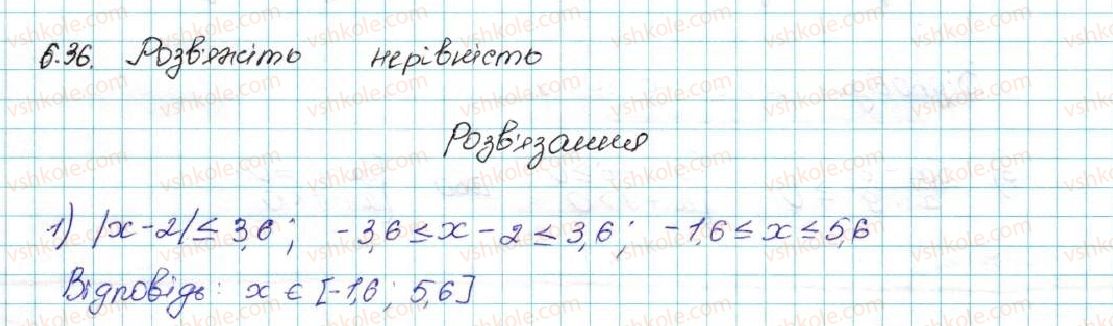 6.36. Розв'яжіть нерівність
Розв'язання
1) |x-2| ≤ 3,6; -3,6 ≤ x - 2 ≤ 3,6; -1,6 ≤ x ≤ 5,6
Відповідь: x ∈ [-1,6; 5,6]